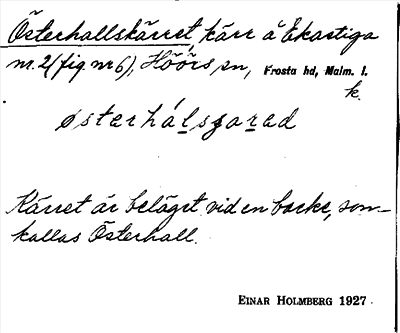 Österhallskärret, kärr å Ekastiga
nr. 2 (fig nr 6), Höörs sn, Frosta hd, Malm. l.
k.
Kärret är beläget vid en backe, som
kallas Österhall.
EINAR HOLMBERG 1927.